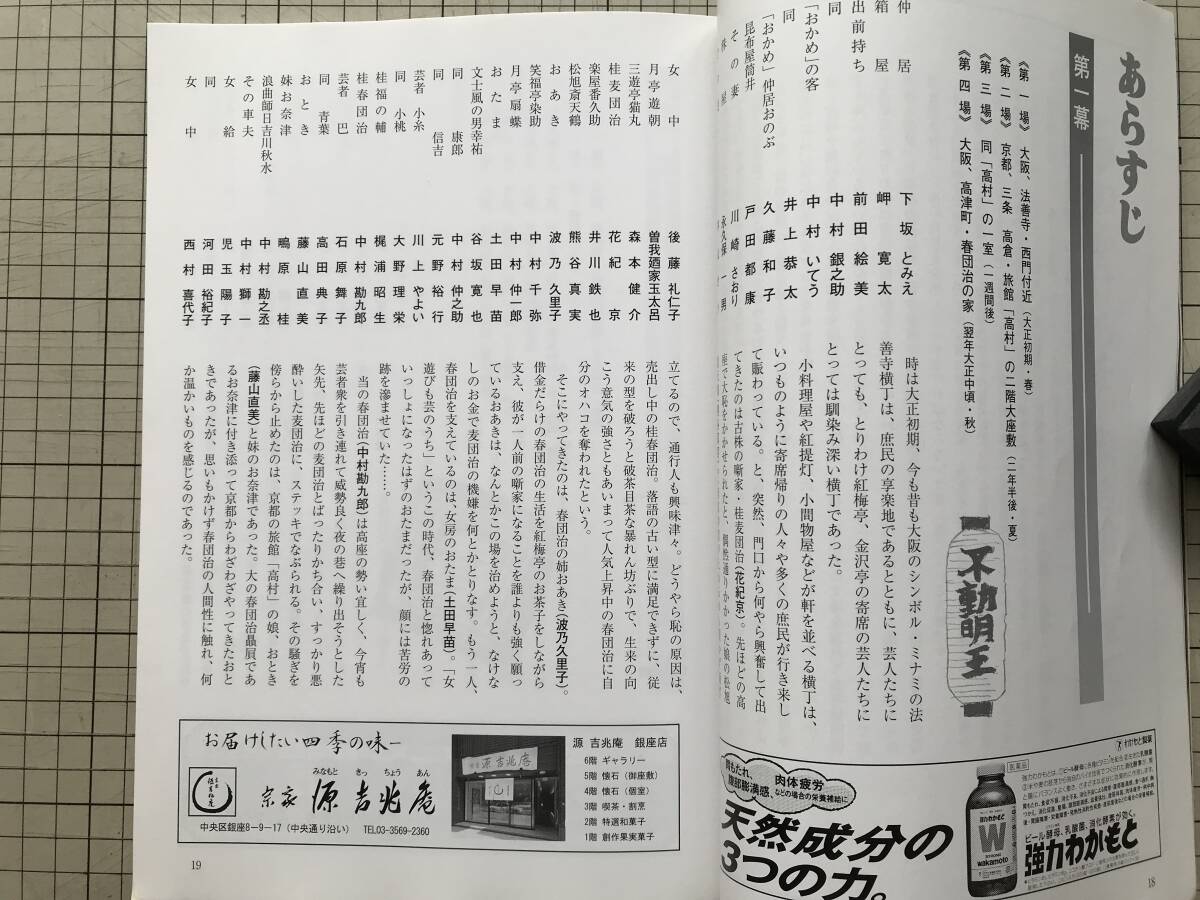 あらすじ
第一幕
《第一場》 大阪、法善寺・西門付近(大正初期・春)
《第二場》 京都、三条 高倉・旅館「高村」の二階大座敷(二年半後・夏)
《第三場》 同「高村」の一室(一週間後)
《第四場》 大阪、高津町・春団治の家(翌年大正中頃・秋)
不動明王
仲居 下坂とみえ
箱屋 岬寛太
出前持ち 前田絵美
同 中村銀之助
「おかめ」の客 中村いてう
同 井上恭太
「おかめ」仲居おのぶ 久藤和子
昆布屋筒井 戸田都康
その妻 川崎さおり
永久保一男
時は大正初期、今も昔も大阪のシンボル・ミナミの法
善寺横丁は、庶民の享楽地であるとともに、芸人たちに
とっても、とりわけ紅梅亭、金沢亭の寄席の芸人たちに
とっては馴染み深い横丁であった。
小料理屋や紅提灯、小間物屋などが軒を並べる横丁は、
いつものように寄席帰りの人々や多くの庶民が行き来し
て賑わっている。と、突然、門口から何やら興奮して出
てきたのは古株の噺家・桂麦団治(花紀京)。先ほどの高
座で大恥をかかせられたと、偶然通りかかった娘の松旭
わかもと製薬
医薬品
胃もたれ、腹部膨満感、
肉体疲労
などの場合の栄養補給に
天然成分の
3つの力。
W
wakamoto
ビール酵母、乳酸菌、消化酵素が効く。
強力わかもと
18
女中 後藤礼仁子
月亭遊朝 曽我廼家玉太呂
三遊亭猫丸 森本健介
桂麦団治 花紀京
楽屋番久助 井川鉄也
松旭斎天鶴 熊谷真実
おあき 波乃久里子
笑福亭染助 中村千弥
月亭扇蝶 中村仲一郎
おたま 土田早苗
文士風の男幸祐 谷坂寛也
同 康郎 中村仲之助
同 信吉 元野裕行
芸者 小糸 川上やよい
同 小桃 大野理栄
桂福の輔 梶浦昭生
桂春団治 中村勘九郎
芸者 巴 石原舞子
同 青葉 高田典子
おとき 藤山直美
妹お奈津 鴫原桂
浪曲師日吉川秋水 中村勘之丞
その車夫 中村獅一
女給 児玉陽子
同 河田裕紀子
女中 西村喜代子
立てるので、通行人も興味津々。どうやら恥の原因は、
売出し中の桂春団治。落語の古い型に満足できずに、従
来の型を破ろうと破茶目茶な暴れん坊ぶりで、生来の向
こう意気の強さともあいまって人気上昇中の春団治に自
分のオハコを奪われたという。
そこにやってきたのは、春団治の姉おあき(波乃久里子)。
借金だらけの春団治の生活を紅梅亭のお茶子をしながら
支え、彼が一人前の噺家になることを誰よりも強く願っ
ているおあきは、なんとかこの場を治めようと、なけな
しのお金で麦団治の機嫌を何とかとりなす。もう一人、
春団治を支えているのは、女房のおたま(土田早苗)。「女
遊びも芸のうち」というこの時代、春団治と惚れあって
いっしょになったはずのおたまだったが、顔には苦労の
跡を滲ませていた……。
当の春団治(中村勘九郎)は高座の勢い宜しく、今宵も
芸者衆を引き連れて威勢良く夜の巷へ繰り出そうとした
矢先、先ほどの麦団治とばったりかち合い、すっかり悪
酔いした麦団治に、ステッキでなぶられる。その騒ぎを
傍らから止めたのは、京都の旅館「高村」の娘、おとき
(藤山直美)と妹のお奈津であった。大の春団治贔屓であ
るお奈津に付き添って京都からわざわざやってきたおと
きであったが、思いもかけず春団治の人間性に触れ、何
か温かいものを感じるのであった。
お届けしたい四季の味ー
宗家 源吉兆庵
みなもと きっ ちょう あん
中央区銀座8-9-17(中央通り沿い) TEL03-3569-2360
源 吉兆庵 銀座店
6階 ギャラリー
5階 懐石(御座敷)
4階 懐石(個室)
3階 喫茶・割烹
2階 特選和菓子
1階 創作果実菓子
19